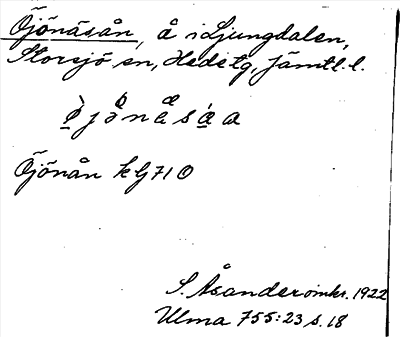 Öjönäsån, å i Ljungdalen,
Storsjö sn, Hede tg, Jämtl. l.
Öjönån k G 710
S. Åsander omkr. 1922
Ulma 755:23 s. 18